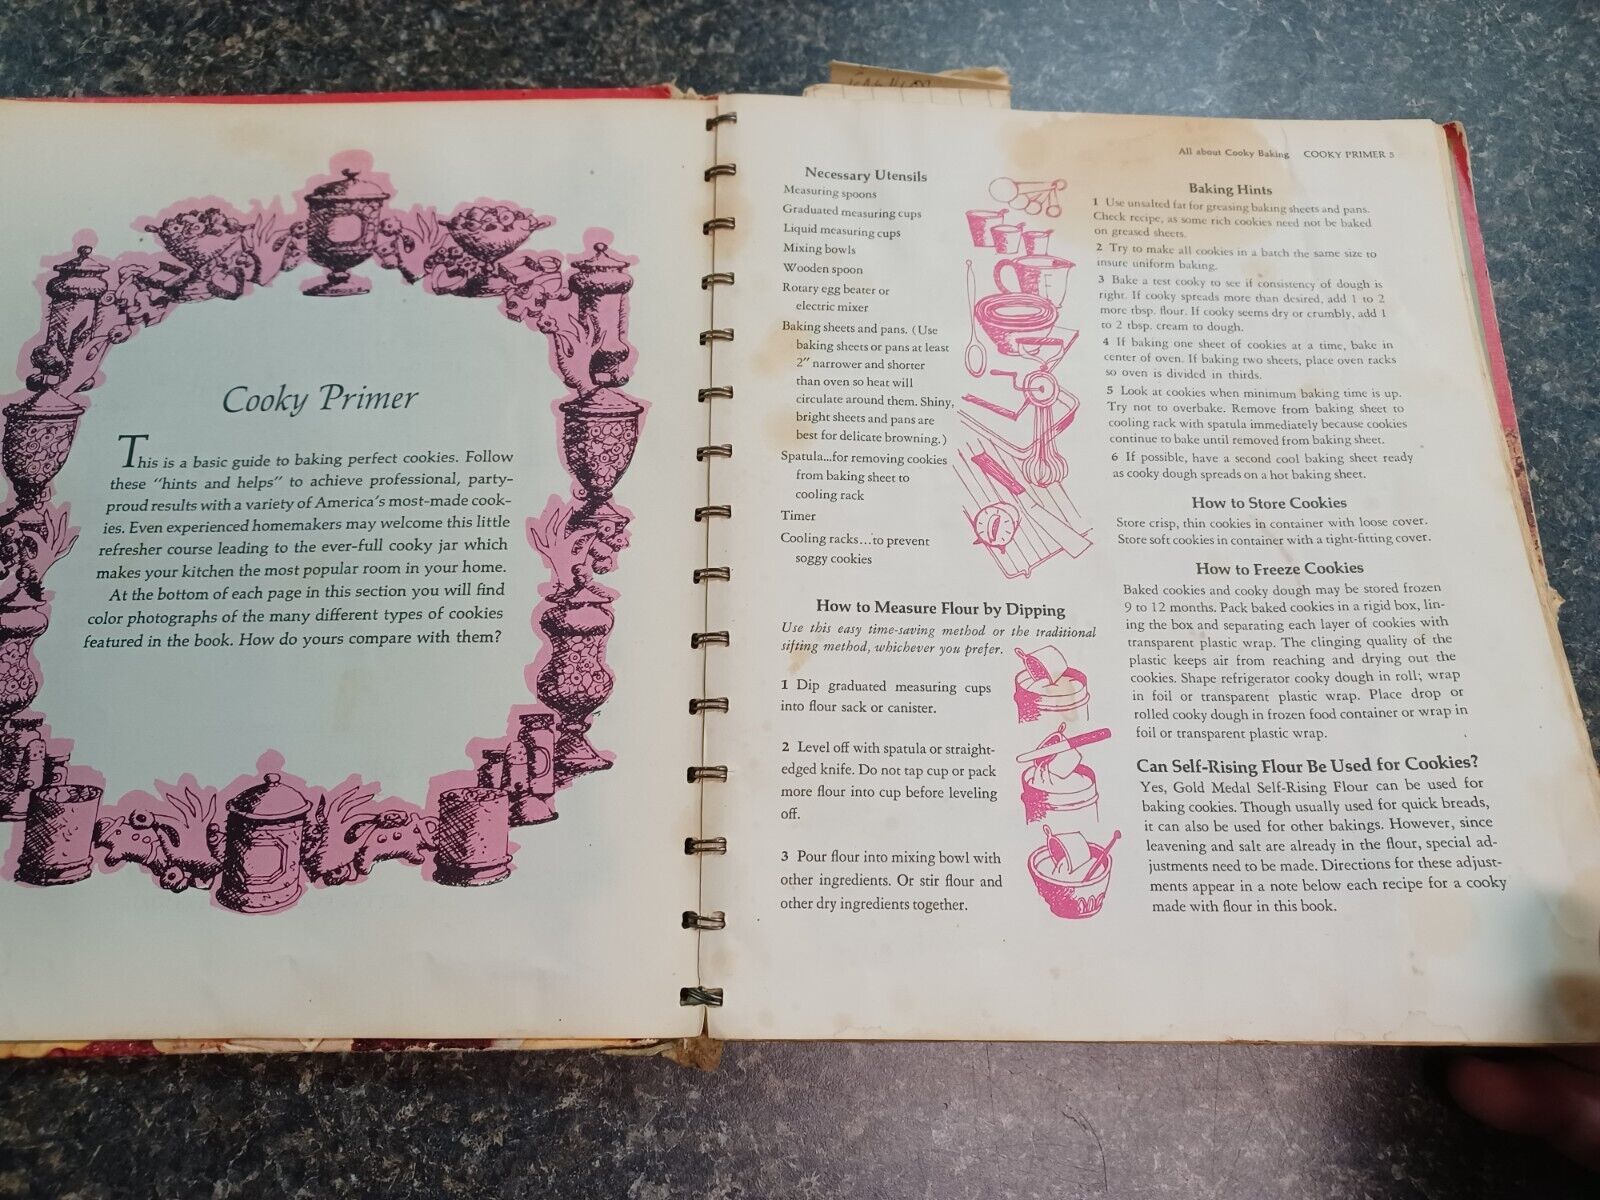 Cooky Primer
This is a basic guide to baking perfect cookies. Follow
these "hints and helps" to achieve professional, party-
proud results with a variety of America's most-made cook-
ies. Even experienced homemakers may welcome this little
refresher course leading to the ever-full cooky jar which
makes your kitchen the most popular room in your home.
At the bottom of each page in this section you will find
color photographs of the many different types of cookies
featured in the book. How do yours compare with them?
All about Cooky Baking COOKY PRIMER 5
Necessary Utensils
Measuring spoons
Graduated measuring cups
Liquid measuring cups
Mixing bowls
Wooden spoon
Rotary egg beater or
electric mixer
Baking sheets and pans. (Use
baking sheets or pans at least
2" narrower and shorter
than oven so heat will
circulate around them. Shiny,
bright sheets and pans are
best for delicate browning.)
Spatula...for removing cookies
from baking sheet to
cooling rack
Timer
Cooling racks...to prevent
soggy cookies
How to Measure Flour by Dipping
Use this easy time-saving method or the traditional
sifting method, whichever you prefer.
1 Dip graduated measuring cups
into flour sack or canister.
2 Level off with spatula or straight-
edged knife. Do not tap cup or pack
more flour into cup before leveling
off.
3 Pour flour into mixing bowl with
other ingredients. Or stir flour and
other dry ingredients together.
Baking Hints
1 Use unsalted fat for greasing baking sheets and pans.
Check recipe, as some rich cookies need not be baked
on greased sheets.
2 Try to make all cookies in a batch the same size to
insure uniform baking.
3 Bake a test cooky to see if consistency of dough is
right. If cooky spreads more than desired, add 1 to 2
more tbsp. flour. If cooky seems dry or crumbly, add 1
to 2 tbsp. cream to dough.
4 If baking one sheet of cookies at a time, bake in
center of oven. If baking two sheets, place oven racks
so oven is divided in thirds.
5 Look at cookies when minimum baking time is up.
Try not to overbake. Remove from baking sheet to
cooling rack with spatula immediately because cookies
continue to bake until removed from baking sheet.
6 If possible, have a second cool baking sheet ready
as cooky dough spreads on a hot baking sheet.
How to Store Cookies
Store crisp, thin cookies in container with loose cover.
Store soft cookies in container with a tight-fitting cover.
How to Freeze Cookies
Baked cookies and cooky dough may be stored frozen
9 to 12 months. Pack baked cookies in a rigid box, lin-
ing the box and separating each layer of cookies with
transparent plastic wrap. The clinging quality of the
plastic keeps air from reaching and drying out the
cookies. Shape refrigerator cooky dough in roll; wrap
in foil or transparent plastic wrap. Place drop or
rolled cooky dough in frozen food container or wrap in
foil or transparent plastic wrap.
Can Self-Rising Flour Be Used for Cookies?
Yes, Gold Medal Self-Rising Flour can be used for
baking cookies. Though usually used for quick breads,
it can also be used for other bakings. However, since
leavening and salt are already in the flour, special ad-
justments need to be made. Directions for these adjust-
ments appear in a note below each recipe for a cooky
made with flour in this book.